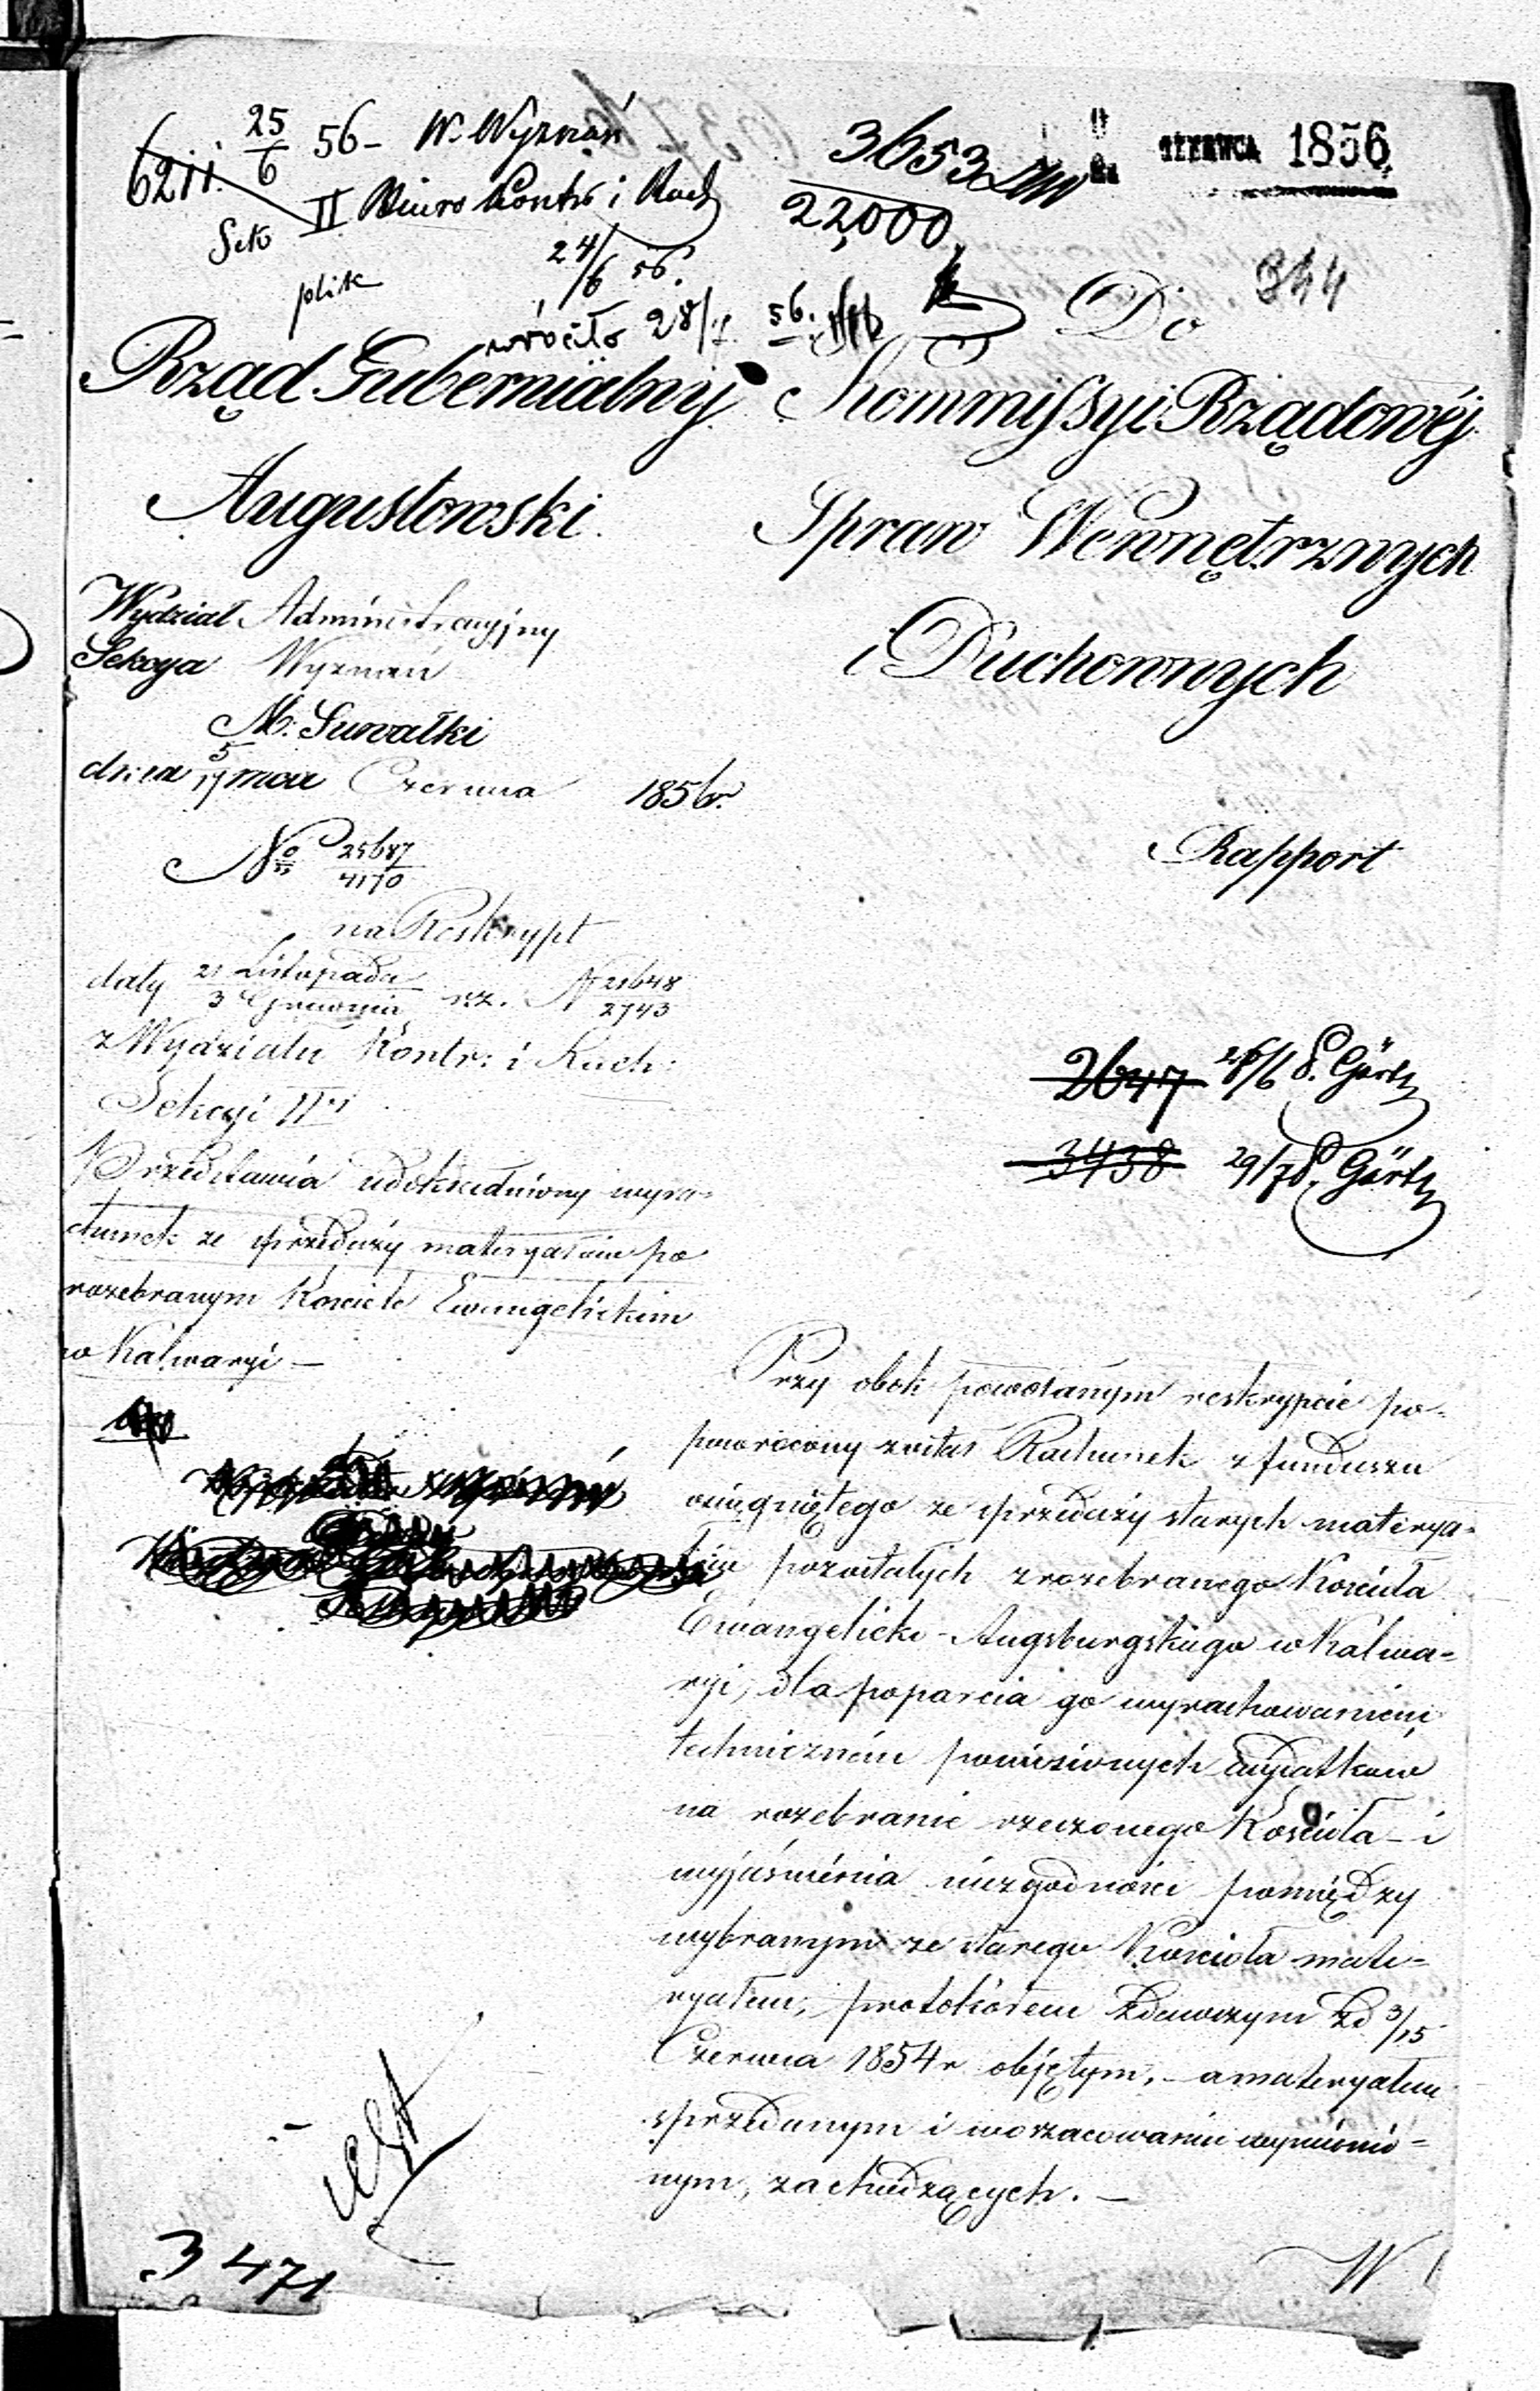 6211. 25/6 56 - W. Wyznań
3653
22,000
CZERWCA 1856
II Biuro Kontr i Rach
24/6 56.
plik
wróciło 28/7. 56.
344
Do
Rząd Gubernialny
Augustowski.
Kommissyi Rządowéj
Spraw Wewnętrznych
i Duchownych
Wydział Administracyjny
Sekcya Wyznań
M. Suwałki
dnia 5/17 mca Czerwca 1856r.
No 25687/4170
Rapport
na Reskrypt
daty 21 Listopada/3 Grudnia rz. N 21648/2743
z Wydziału Kontr: i Rach:
Sekcyi II
2647 26/6 P. Görtz
3438 29/7 P. Görtz
Przedstawia udokładniony wyra=
chunek ze sprzedaży materyałów po
rozebranym Kościele Ewangelickim
w Kalwaryi —
Przy obok powołanym reskrypcie po=
powrócony został Rachunek z funduszu
osiągniętego ze sprzedaży starych materya=
łów pozostałych z rozebranego Kościoła
Ewangelicko-Augsburgskiego w Kalwa=
ryi, dla poparcia go wyrachowaniem
techniczném poniesionych wydatków
na rozebranie rzeczonego Kościoła - i
wyjaśnienia niezgodności pomiędzy
wybranym ze starego Kościoła mate=
ryałem, protokółem zdawczym zd 3/15
Czerwca 1854r objętym, - a materyałem
sprzedanym i w oszacowaniu wymienio=
nym, zachodzących. —
W
3471